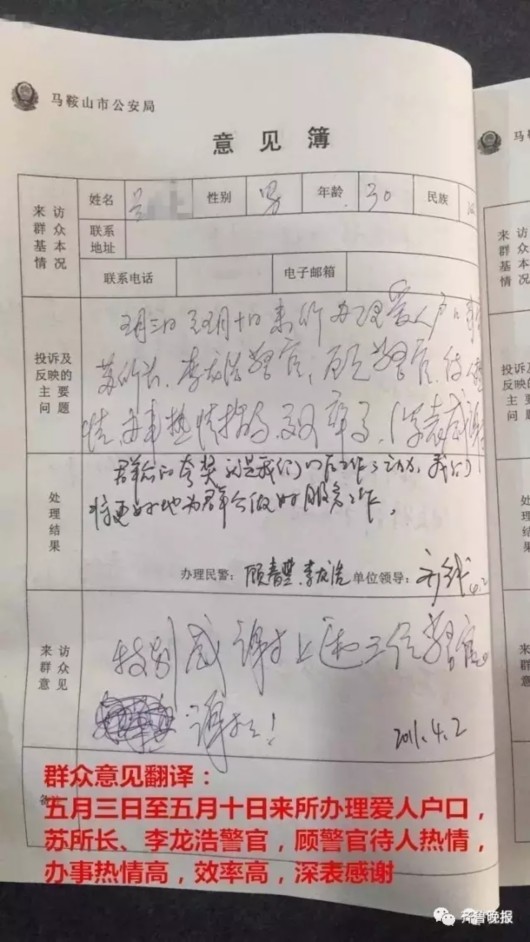 马鞍山市公安局
马
意见簿
来访群众基本情况
姓名 性别 男 年龄 30 民族
联系地址
联系电话 电子邮箱
来访群众基本情况
投诉及反映的主要问题
五月三日至五月十日来所办理爱人户口
苏所长、李龙浩警官,顾警官,待
情,办事热情 高,效率高,深表感谢
投诉及反映的主要问题
处理结果
群众的夸奖就是我们的工作动力,我们
将更好地为群众做好服务工作。
办理民警: 顾青 李龙浩 单位领导: 4.2
处理结果
来访群众意见
特别感谢上述三位警官。
谢谢!
2011.4.2
来访群众意见
群众意见翻译:
五月三日至五月十日来所办理爱人户口,
苏所长、李龙浩警官,顾警官待人热情,
办事热情高,效率高,深表感谢
齐鲁晚报